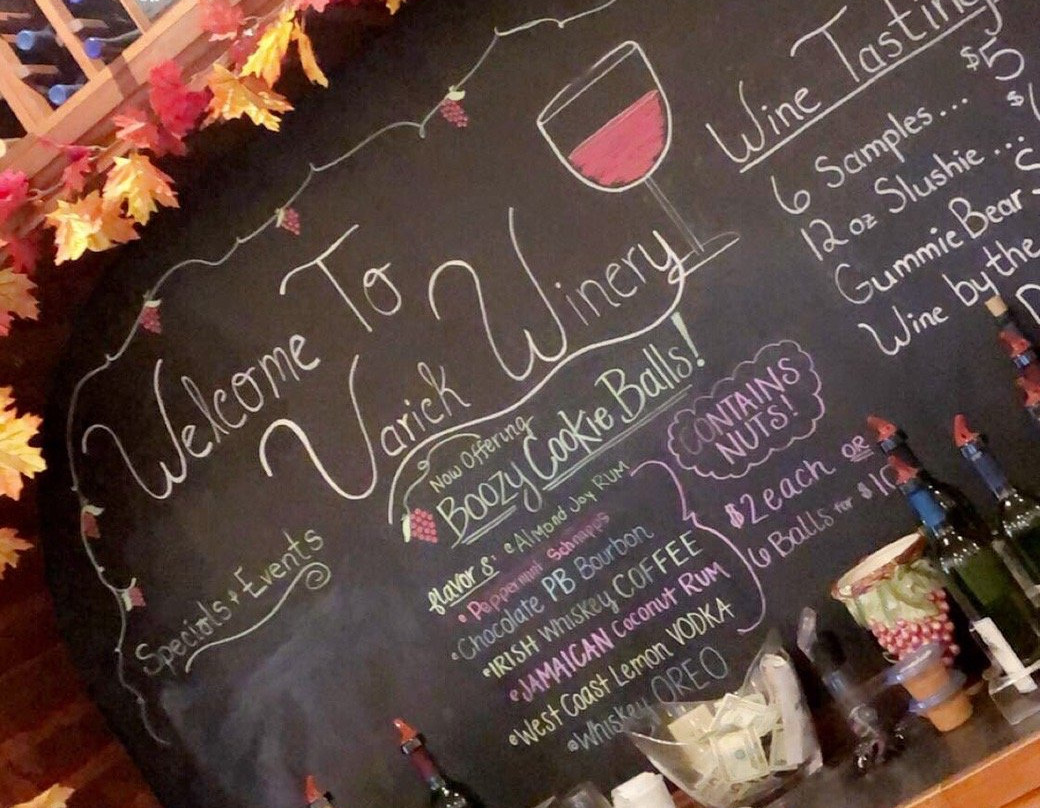 Welcome To
Varick Winery
Specials & Events
Now Offering
Boozy Cookie Balls!
flavors:
•Almond Joy RUM
•Peppermint Schnapps
•Chocolate PB Bourbon
•IRISH Whiskey COFFEE
•JAMAICAN Coconut RUM
•West Coast Lemon VODKA
•Whiskey OREO
CONTAINS
NUTS!
$2 each OR
6 Balls for $10
Wine Tasting
$5
6 Samples...
12 oz Slushie...
Gummie Bear
Wine by the